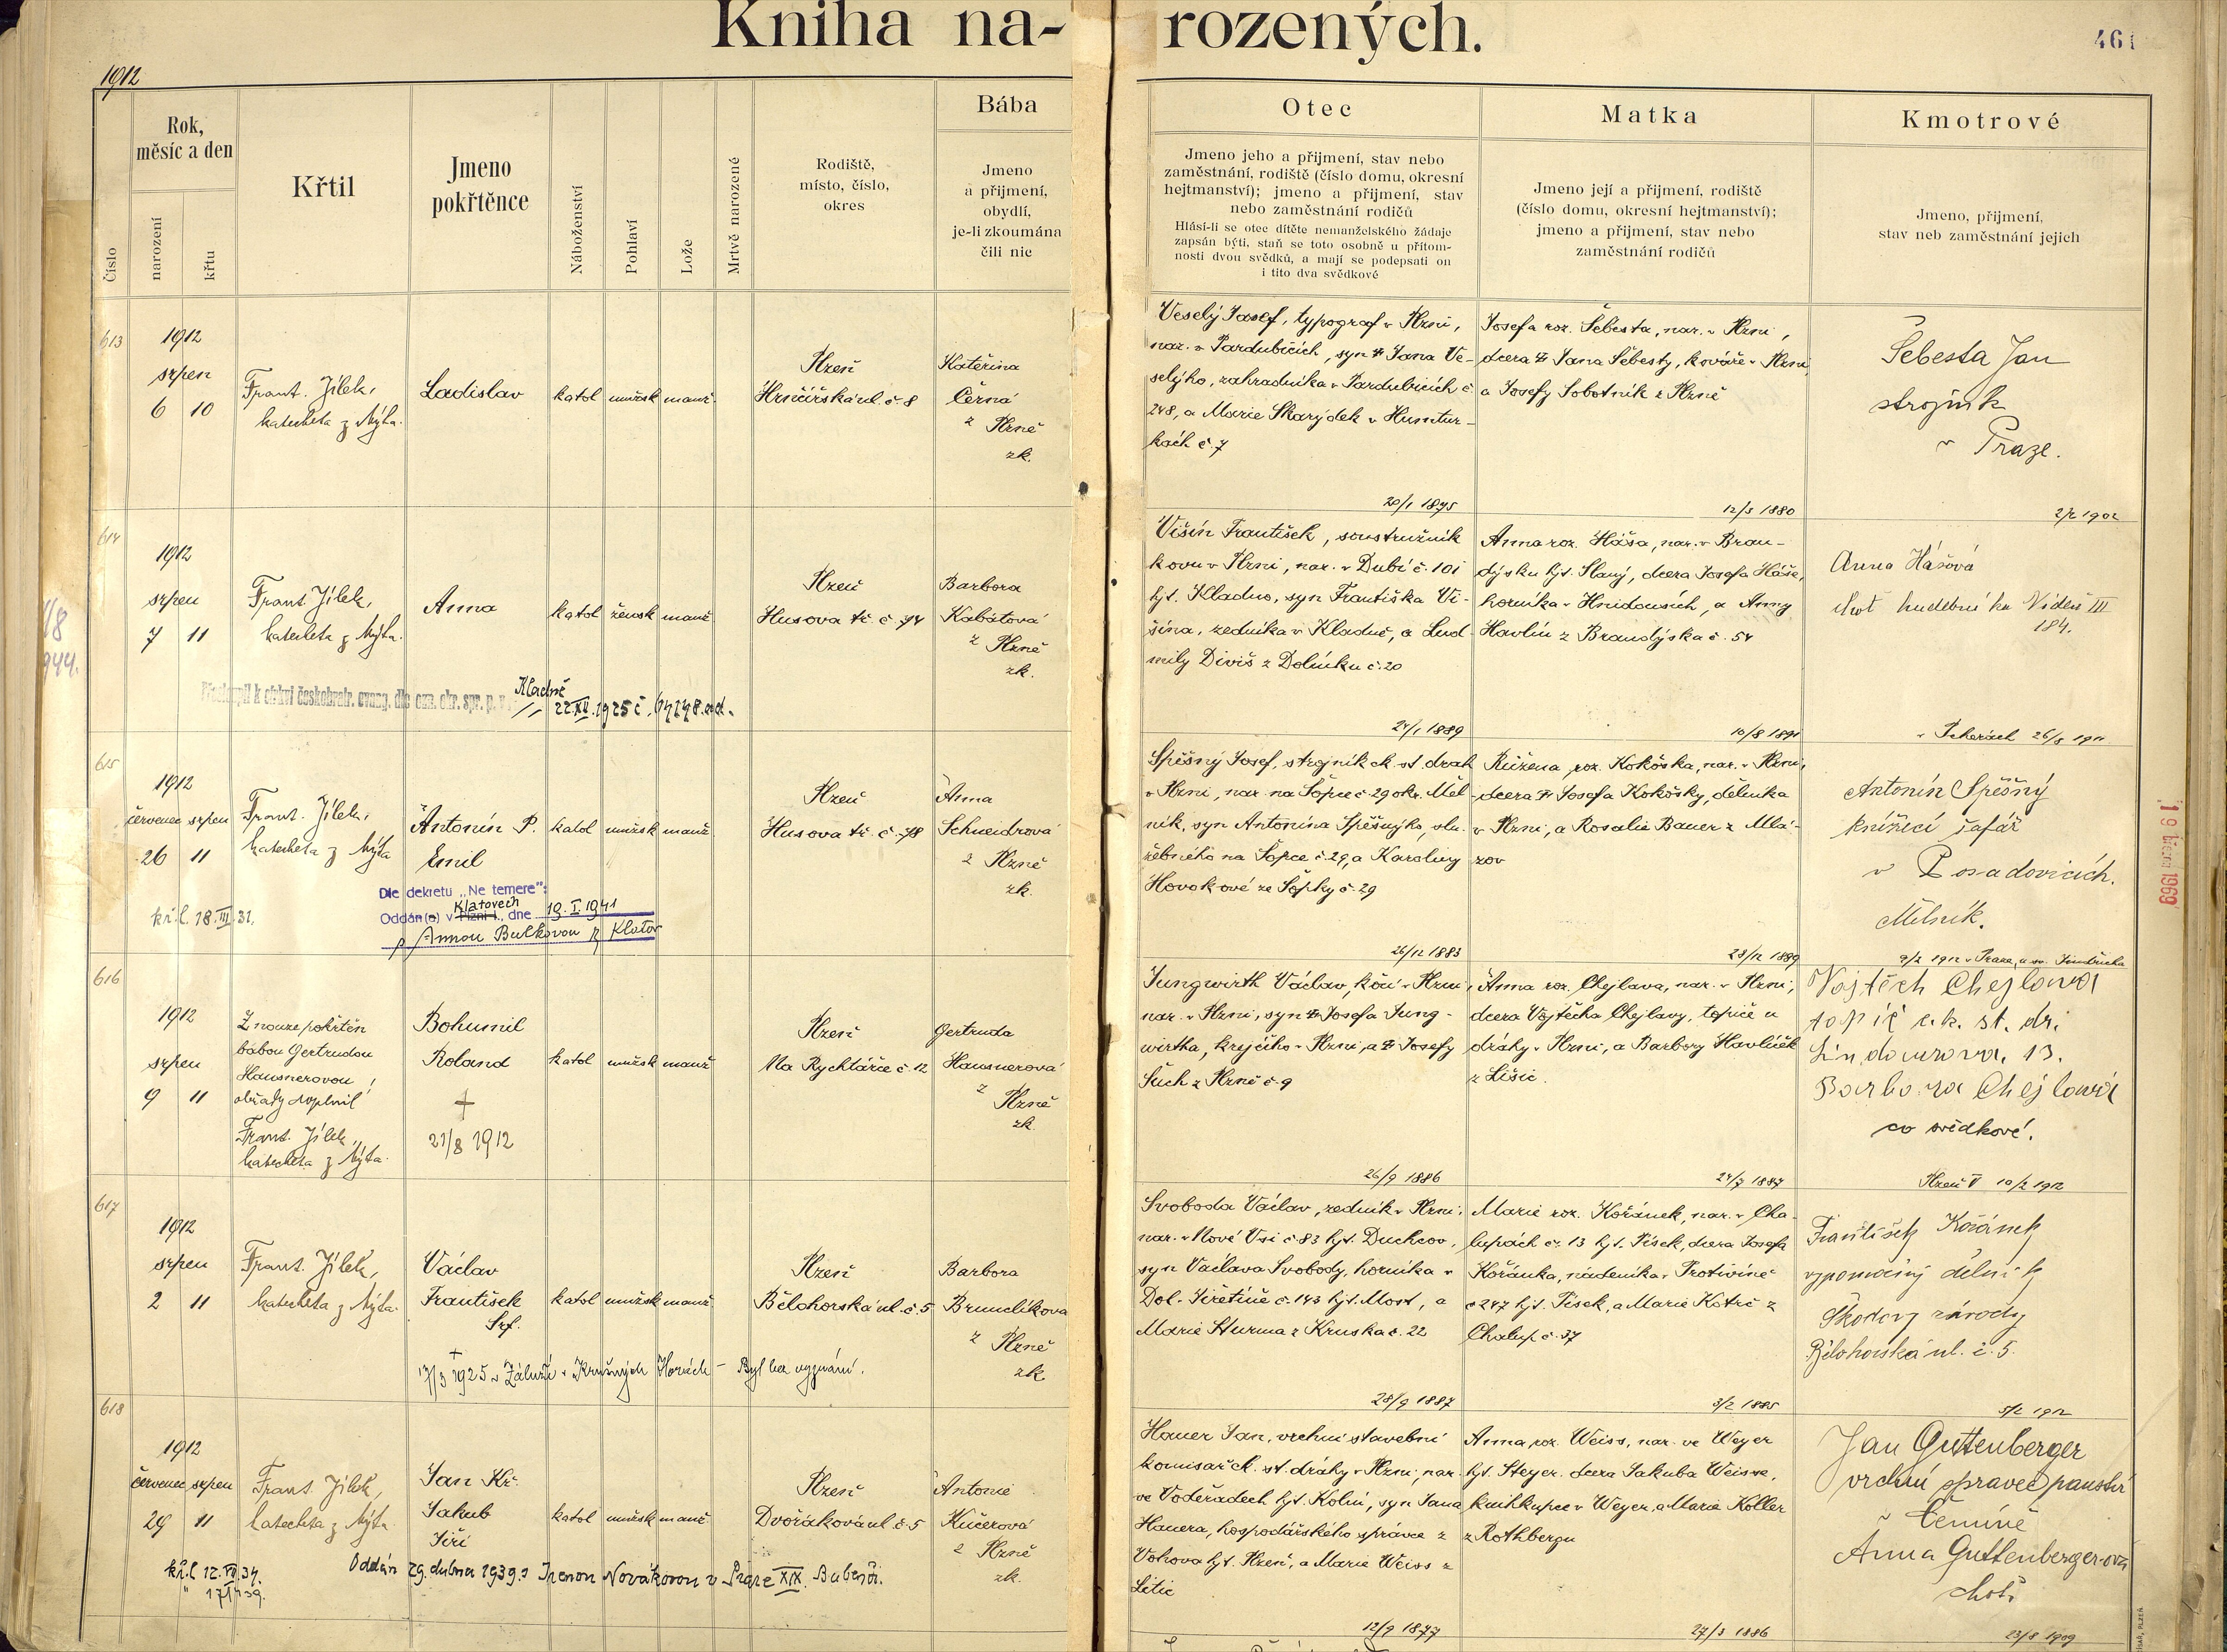 Kniha na-rozených.
461
1912
Číslo
Rok,
měsíc a den
narození
křtu
Křtil
Jmeno
pokřtěnce
Náboženství
Pohlaví
Lože
Mrtvě narozené
Rodiště,
místo, číslo,
okres
Bába
Jmeno
a přijmení,
obydlí,
je-li zkoumána
čili nic
Otec
Jmeno jeho a přijmení, stav nebo
zaměstnání, rodiště (číslo domu, okresní
hejtmanství); jmeno a přijmení, stav
nebo zaměstnání rodičů
Hlásí-li se otec dítěte nemanželského žádaje
zapsán býti, staň se toto osobně u přítom-
nosti dvou svědků, a mají se podepsati on
i tito dva svědkové
Matka
Jmeno její a přijmení, rodiště
(číslo domu, okresní hejtmanství);
jmeno a přijmení, stav nebo
zaměstnání rodičů
Kmotrové
Jmeno, přijmení,
stav neb zaměstnání jejich
613
1912
srpen
6 10
Frant. Jílek,
katecheta z Mýta.
Ladislav
katol
mužsk
manž.
Plzeň
Hrnčířská ul. č. 8
Kateřina
Černá
z Plzně
zk.
Veselý Josef, typograf v Plzni,
nar. v Pardubicích, syn † Jana Ve-
selýho, zahradníka v Pardubicích č.
248, a Marie Skarýdek v
kách č. 7
20/1 1875
Josefa roz. Šebesta, nar. v Plzni,
dcera † Jana Šebesty, kováře v Plzni,
a Josefy Sobotník z Plzně
12/3 1880
Šebesta Jan
strojník
v Praze.
2/2 1902
614
1912
srpen
7 11
Frant. Jílek,
katecheta z Mýta.
Anna
katol
žensk
manž
Plzeň
Husova tř. č. 74
Barbora
Kabátová
z Plzně
zk.
Přestoupil k církvi českobratr. evang. dle ozn. okr. spr. p. v
Kladně
22.XII.1925 č.
Višín František, soustružník
kovu v Plzni, nar. v Dubí č. 101
hjt. Kladno, syn Františka Vi-
šína, zedníka v Kladně, a Lud-
mily Diviš z Dolínku č. 20
24/1 1889
Anna roz. Háša, nar. v Bran-
dýsku hjt. Slaný, dcera Josefa Háše,
horníka v Hnidousích, a Anny
Havlín z Brandýska č. 54
10/8 1891
Anna Hášová
choť hudebníka Vídeň III
184.
v Pcherách 26/8 1911
615
1912
červenec srpen
26 11
Frant. Jílek,
katecheta z Mýta
Antonín P.
Emil
katol
mužsk
manž
Plzeň
Husova tř. č. 78
Anna
Schneidrová
z Plzně
zk.
kř.l. 18.III.31.
Dle dekretu „Ne temere":
Klatovech
Oddán(a) v Plzni I., dne 19.I.1941
s Annou Bulkovou z Klatov
Spěšný Josef, strojník ck. st. drah
v Plzni, nar. na Šopce č. 29 okr. Měl-
ník, syn Antonína Spěšnýho, slu-
žebného na Šopce č. 29, a Karoliny
Horokové ze Šopky č. 29
26/12 1883
Růžena roz. Kokoška, nar. v Plzni,
dcera † Josefa Kokošky, dělníka
v Plzni, a Rosalie Bauer z Mlá-
zov
23/12 1889
Antonín Spěšný
knížecí šafář
v Posadovicích.
Mělník.
9/2 1912 v Praze, u sv. Jindřicha
616
1912
srpen
9 11
Z nouze pokřtěn
bábou Gertrudou
Hausnerovou;
obřady doplnil
Frant. Jílek,
katecheta z Mýta.
Bohumil
Roland
†
21/8 1912
katol
mužsk
manž
Plzeň
Na Rychtářce č. 12
Gertruda
Hausnerová
z Plzně
zk.
Jungwirth Václav, kočí v Plzni,
nar. v Plzni, syn † Josefa Jung-
wirtha, krejčího v Plzni, a † Josefy
Such z Plzně č. 9
26/9 1886
Anna roz. Chejlava, nar. v Plzni,
dcera Vojtěcha Chejlavy, topiče u
dráhy v Plzni, a Barbory Havlíček
z Lišic.
24/7 1887
Vojtěch Chejlava
topič c.k. st. dr.
Barbora Chejlava
co svědkové.
Plzeň V 10/2 1912
617
1912
srpen
2 11
Frant. Jílek,
katecheta z Mýta.
Václav
František
Srf.
katol
mužsk
manž
Plzeň
Bělohorská ul. č. 5
Barbora
Brunclíkova
z Plzně
zk.
†
17/3 1925 v Záluží v Krušných Horách – Byl bez vyznání.
Svoboda Václav, zedník v Plzni,
nar. v Nové Vsi č. 83 hjt. Duchcov,
syn Václava Svobody, horníka v
Dol. Jiřetíně č. 143 hjt. Most, a
Marie Sturma z Kruska č. 22
28/9 1887
Marie roz. Kořánek, nar. v Cha-
lupách č. 13 hjt. Písek, dcera Josefa
Kořánka, nádeníka v Protivíně
č 247 hjt. Písek, a Marie Kotrč z
Chalup č. 37
3/2 1885
František Kořánek
výpomocný dělník
Škodovy závody
Bělohorská ul. č. 5.
5/2 1912
618
1912
červenec srpen
29 11
Frant. Jílek,
katecheta z Mýta
Jan Kř.
Jakub
Jiří
katol
mužsk
manž.
Plzeň
Dvořákova ul. č. 5
Antonie
Kučerová
z Plzně
zk.
kř.l. 12.VII.34.
Oddán 29. dubna 1939 s Irenou Novákovou v Praze XIX. Bubenči.
Hauer Jan, vrchní stavební
komisař ck. st. dráhy v Plzni, nar.
ve Voděradech hjt. Kolín, syn Jana
Hauera, hospodářského správce z
Vohova hjt. Plzeň, a Marie Weiss z
Litic
12/9 1877
Anna roz. Weiss, nar. ve Weyer
hjt. Steyer, dcera Jakuba Weisse,
knihkupce v Weyer, a Marie Koller
z Rothbergu
27/3 1886
Jan Guttenberger
vrchní správce panství
v Čemíně
Anna Guttenberger-ová
choť
23/8 1909
19 února 1969